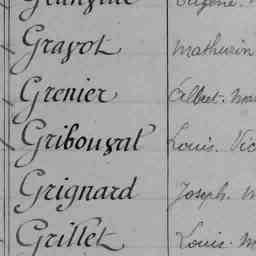 Eugène
Gravot Mathurin
Grenier Albert
Gribouval Louis Vic
Grignard Joseph M
Grillet Louis M